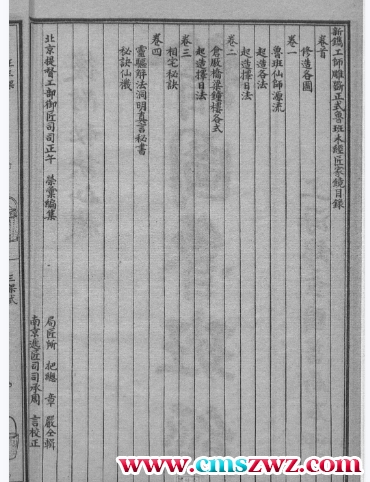 新鐫工師雕斲正式魯班木經匠家鏡目錄
卷首
修造各圖
卷一
魯班仙師源流
起造各法
起造擇日法
卷二
倉廒橋梁鐘樓各式
起造擇日法
卷三
相宅秘訣
卷四
靈驅解法洞明真言秘書
秘訣仙機
北京提督工部御匠司司正午 榮彙編集
局匠所 把總 章 嚴仝輯
南京遞匠司司承周 言校正
三架式
www.cmszwz.com